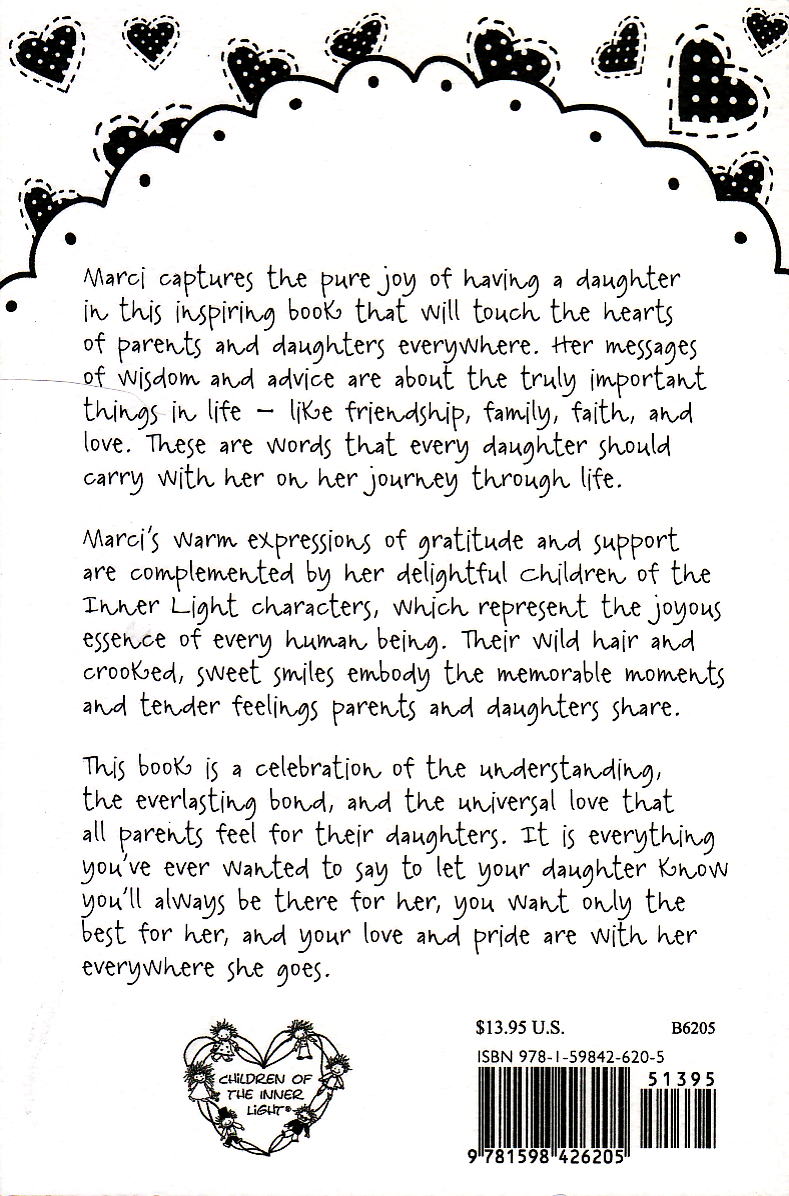 Marci captures the pure joy of having a daughter
in this inspiring book that will touch the hearts
of parents and daughters everywhere. Her messages
of wisdom and advice are about the truly important
things in life – like friendship, family, faith, and
love. These are words that every daughter should
carry with her on her journey through life.
Marci's warm expressions of gratitude and support
are complemented by her delightful Children of the
Inner Light characters, which represent the joyous
essence of every human being. Their wild hair and
crooked, sweet smiles embody the memorable moments
and tender feelings parents and daughters share.
This book is a celebration of the understanding,
the everlasting bond, and the universal love that
all parents feel for their daughters. It is everything
you've ever wanted to say to let your daughter know
you'll always be there for her, you want only the
best for her, and your love and pride are with her
everywhere she goes.
CHILDREN OF
THE INNER
LIGHT®
$13.95 U.S. B6205
ISBN 978-1-59842-620-5
51395
9 781598 426205